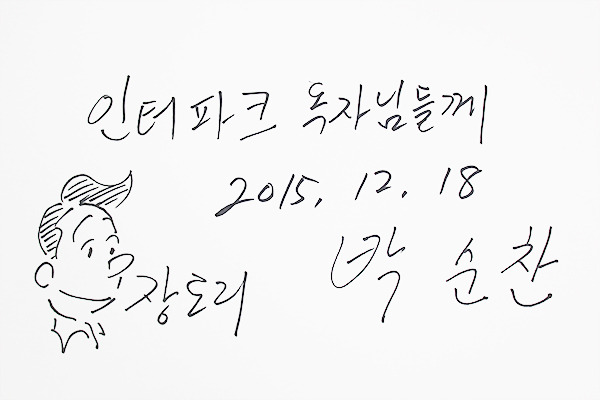 인터파크 독자님들께
2015. 12. 18
장도리
박순찬